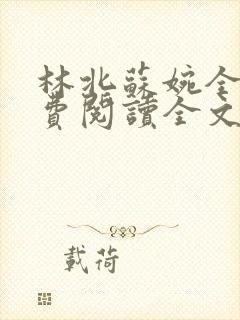 林北蘇婉全
費閱讀全文
載荷